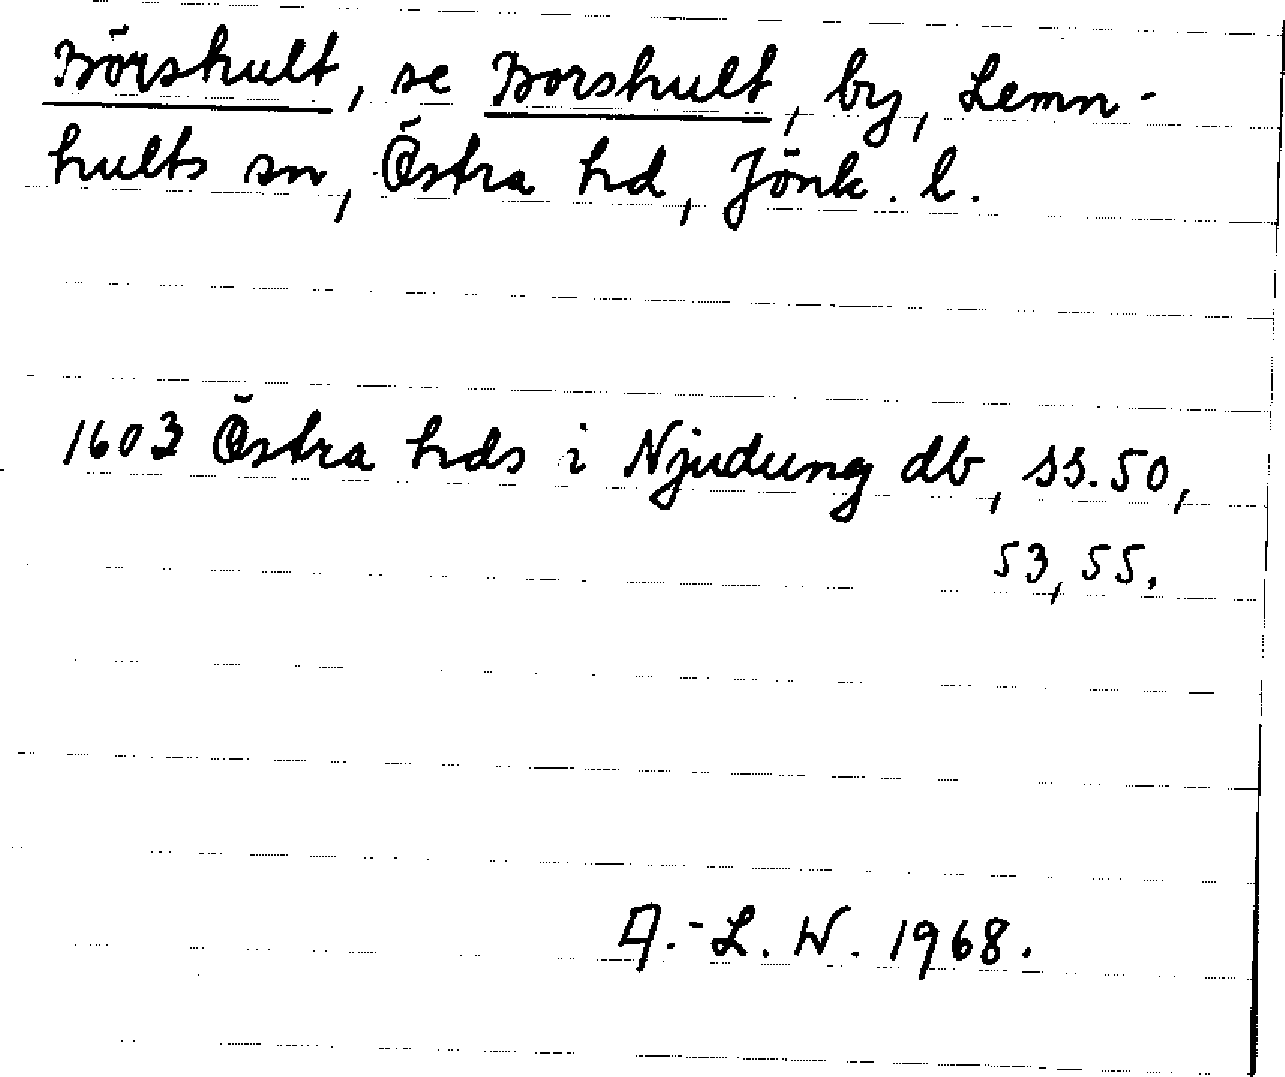 Börshult, se Borshult, by, Lemn-
hults sn, Östra hd, Jönk. l.
1603 Östra hds i Njudung db, ss. 50,
53, 55.
A.-L. W. 1968.